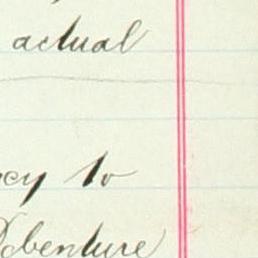 actual
to
Debenture